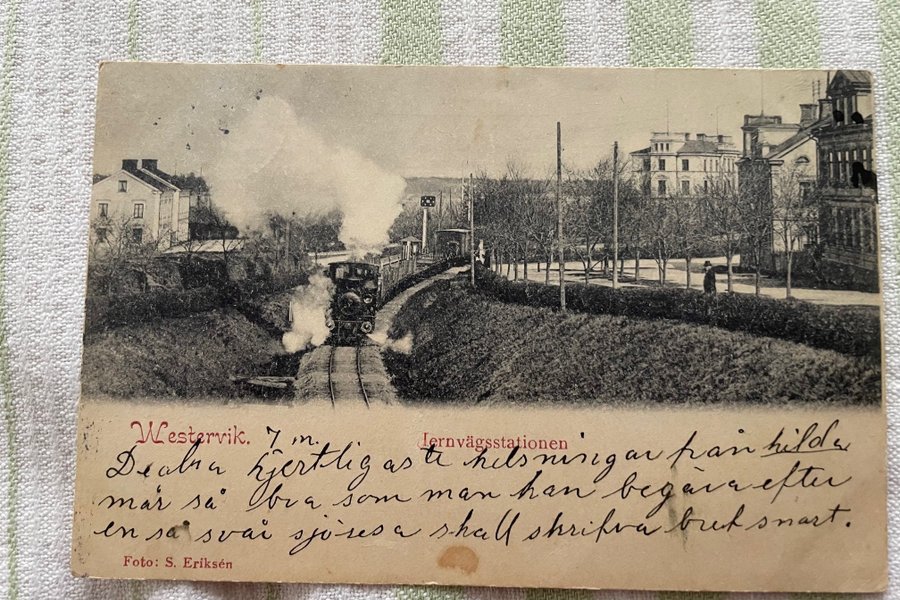 Westervik. 7 m. Iernvägsstationen
De alra hjertligaste helsningar från hilda
mår så bra som man kan begära efter
en så svår sjöresa skall skrifva bref snart.
Foto: S. Eriksén